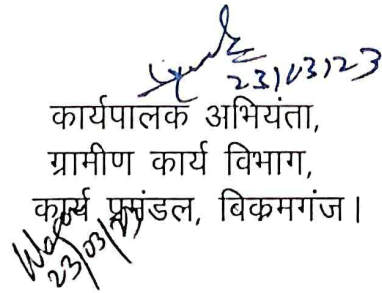 23/03/23
कार्यपालक अभियंता,
ग्रामीण कार्य विभाग,
कार्य प्रमंडल, बिक्रमगंज।
23/03/23